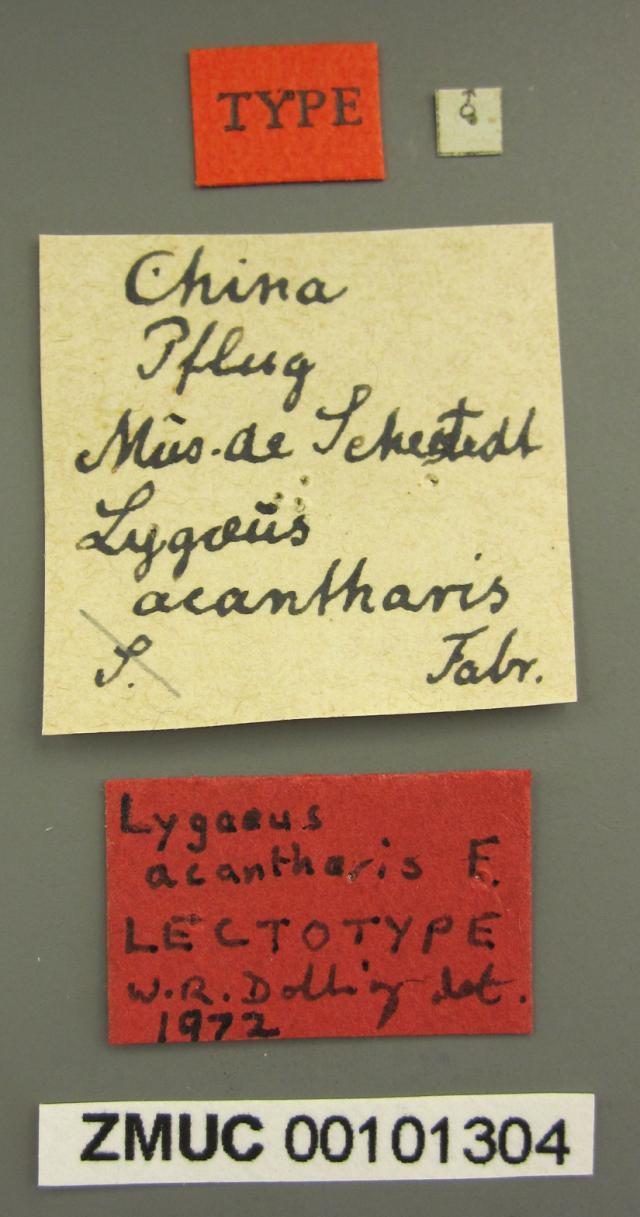 TYPE
♂
China
Pflug
Mûs. de Sehestedt
Lygæûs
acantharis
S. Fabr.
Lygaeus
acantharis F.
LECTOTYPE
W.R. Dolling det.
1972
ZMUC 00101304